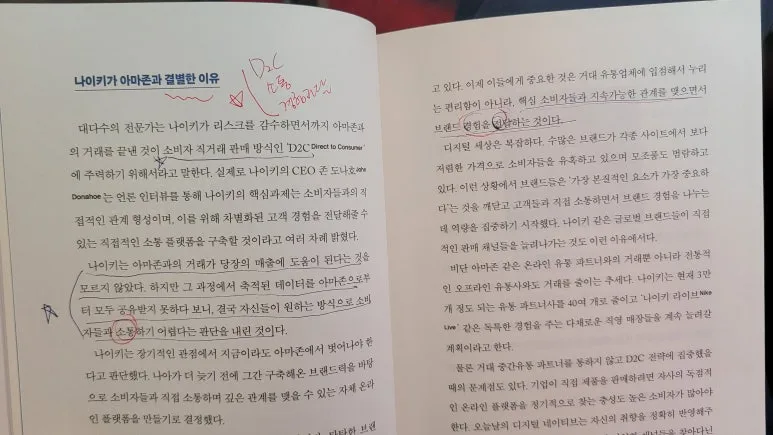 나이키가 아마존과 결별한 이유
D2C
소통
대다수의 전문가는 나이키가 리스크를 감수하면서까지 아마존과
의 거래를 끝낸 것이 소비자 직거래 판매 방식인 'D2C Direct to Consumer'
에 주력하기 위해서라고 말한다. 실제로 나이키의 CEO 존 도나호John
Donahoe는 언론 인터뷰를 통해 나이키의 핵심과제는 소비자들과의 직
접적인 관계 형성이며, 이를 위해 차별화된 고객 경험을 전달해줄 수
있는 직접적인 소통 플랫폼을 구축할 것이라고 여러 차례 밝혔다.
나이키는 아마존과의 거래가 당장의 매출에 도움이 된다는 것을
모르지 않았다. 하지만 그 과정에서 축적된 데이터를 아마존으로부
터 모두 공유받지 못하다 보니, 결국 자신들이 원하는 방식으로 소비
자들과 소통하기 어렵다는 판단을 내린 것이다.
나이키는 장기적인 관점에서 지금이라도 아마존에서 벗어나야 한
다고 판단했다. 나아가 더 늦기 전에 그간 구축해온 브랜드력을 바탕
으로 소비자들과 직접 소통하며 깊은 관계를 맺을 수 있는 자체 온라
인 플랫폼을 만들기로 결정했다.
브랜
고 있다. 이제 이들에게 중요한 것은 거대 유통업체에 입점해서 누리
는 편리함이 아니라, 핵심 소비자들과 지속가능한 관계를 맺으면서
브랜드 경험을 전달하는 것이다.
디지털 세상은 복잡하다. 수많은 브랜드가 각종 사이트에서 보다
저렴한 가격으로 소비자들을 유혹하고 있으며 모조품도 범람하고
있다. 이런 상황에서 브랜드들은 '가장 본질적인 요소가 가장 중요하
다'는 것을 깨닫고 고객들과 직접 소통하면서 브랜드 경험을 나누는
데 역량을 집중하기 시작했다. 나이키 같은 글로벌 브랜드들이 직접
적인 판매 채널들을 늘려나가는 것도 이런 이유에서다.
비단 아마존 같은 온라인 유통 파트너와의 거래뿐 아니라 전통적
인 오프라인 유통사와도 거래를 줄이는 추세다. 나이키는 현재 3만
개 정도 되는 유통 파트너사를 40여 개로 줄이고 '나이키 라이브Nike
Live' 같은 독특한 경험을 주는 다채로운 직영 매장들을 계속 늘려갈
계획이라고 한다.
물론 거대 중간유통 파트너를 통하지 않고 D2C 전략에 집중했을
때의 문제점도 있다. 기업이 직접 제품을 판매하려면 자사의 독점적
인 온라인 플랫폼을 정기적으로 찾는 충성도 높은 소비자가 많아야
한다. 오늘날의 디지털 네이티브는 자신의 취향을 정확히 반영해주